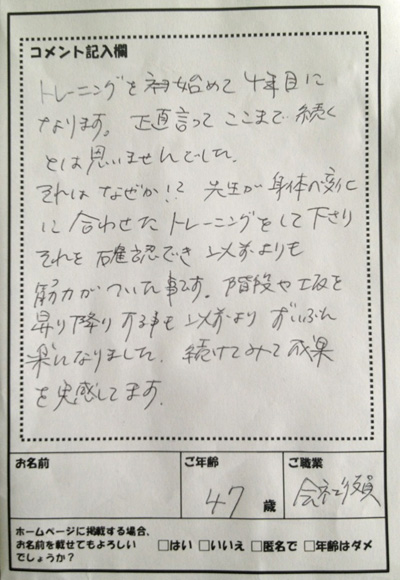 コメント記入欄
トレーニングを始めて4年目に
なります。正直言ってここまで続く
とは思いませんでした。
それはなぜか!? 先生が身体の変化
に合わせたトレーニングをして下さり
それを確認でき以前よりも
筋力がついた事です。階段や坂を
昇り降りする事も以前よりずいぶん
楽になりました。続けてみて成果
を実感してます。
お名前 ご年齢 ご職業
47歳 会社役員
ホームページに掲載する場合、
お名前を載せてもよろしい
でしょうか? □はい □いいえ □匿名で □年齢はダメ